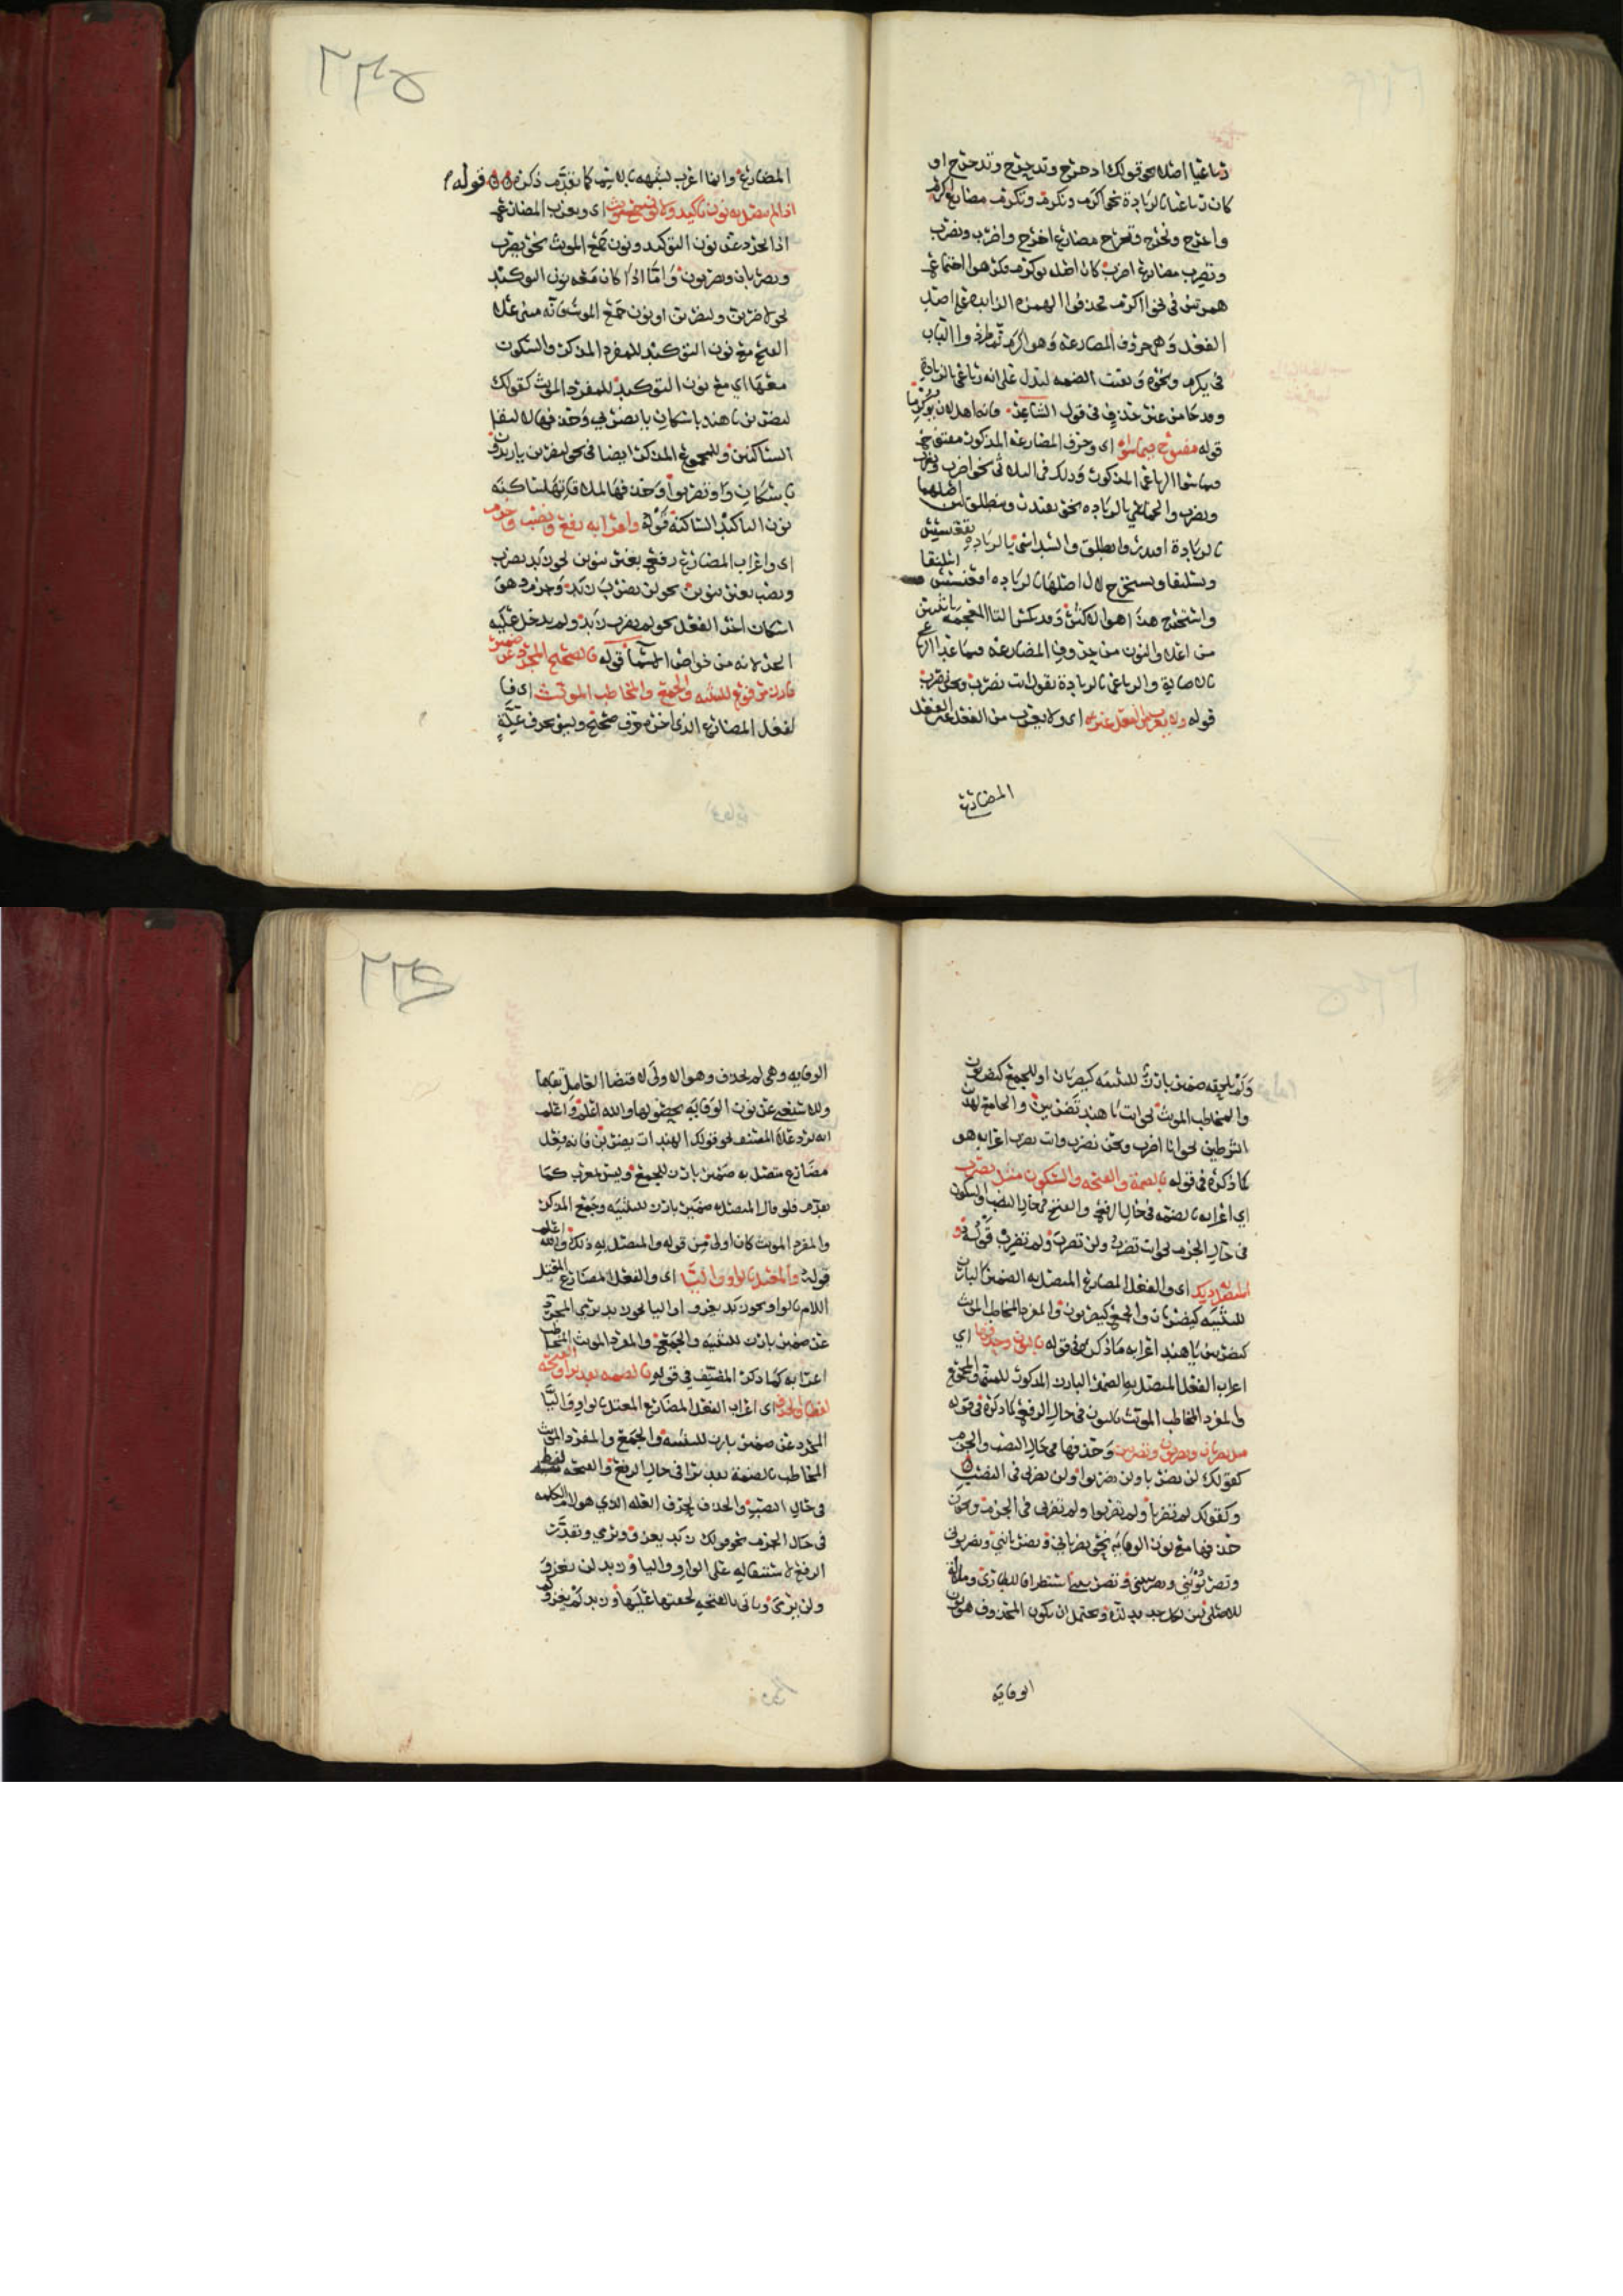 رباعيا اصله نحو قولك ادحرج وتدحرج وندحرج او
كان رباعيا بالزيادة نحو اكرم ونكرم وتكرم مضارع اكرم
واخرج ونخرج وتخرج مضارع اخرج واضرب ونضرب
وتضرب مضارع اضرب كان اصله يوكرم فكرهوا اجتماع
همزتين في نحو ااكرم فحذفوا الهمزة الزايده على اصل
الفعل وهي حروف المضارعة وهو اكرم ثم طردوا الباب
في يكرم ونحوه وبقيت الضمه لتدل على انه رباعي بالزيادة
وقد جا من غير حذف في قول الشاعر فانه اهل لان يؤكرما
قوله مفتوح فيما سواه اي وحرف المضارعه المذكور مفتوح
فيما سوا الرباعي المذكور وذلك في الثلاثي نحو اضرب
ونضرب والخماسي بالزياده نحو نقتدر وينطلق لان اصلهما
بالزيادة اقتدر وانطلق والسداسي بالزيادة يقعنسس
ويسلنقا ويستخرج لان اصلها بالزياده اقعنسس اسلنقا
واستخرج هذا هو الاكثر وقد تكسر التا المعجمه باثنتين
من اعلا والنون من حروف المضارعه فيما عدا الرباعي
بالاصالة والرباعي بالزيادة تقول انت تضرب ونحن نضرب
قوله ولا يعرب من الفعل غيره اي ولا يعرب من الفعل غير الفعل
المضارع
٢٣٥
المضارع وانما اعرب لشبهه بالاسم كما تقدم ذكره قوله
اذا لم يتصل به نون تاكيد ولا نون جمع مونث اي ويعرب المضارع
اذا تجرد عن نون التوكيد ونون جمع المونث نحو يضرب
ويضربان ويضربون واما اذا كان معه نون التوكيد
نحو لاضربن ولتضربن او نون جمع المونث فانه مبني على
الفتح مع نون التوكيد للمفرد المذكر والسكون
معها اي مع نون التوكيد للمفرد المونث كقولك
لتضربن يا هند باسكان يا تضربي وحذفها لالتقا
الساكنين وللمجموع المذكر ايضا في نحو لتضربن يا زيدون
باسكان واو تضربوا وحذفها لملاقاتها ساكنه
نون التاكيد الساكنة قوله واعرابه رفع ونصب وجزم
اي واعراب المضارع رفع بغير تنوين نحو زيد يضرب
ونصب بغير تنوين نحو لن يضرب زيد وجزم وهو
اسكان اخر الفعل نحو لم يضرب زيد ولم يدخل عليه
الجر لانه من خواص الاسما قوله فالصحيح المجرد عن ضمير
بارز مرفوع للتثنيه والجمع والمخاطب المونث اي فا
لفعل المضارع الذي اخره حرف صحيح وليس بحرف علة
ولم يلحقه ضمير بارز للتثنيه كيضربان او للجمع كيضربون
والمخاطب المونث نحو انت يا هند تضربين والجامع لهذه
الشرطين نحو انا اضرب ونحن نضرب وانت تضرب اعرابه هو
كما ذكره في قوله بالضمة والفتحه والسكون مثل يضرب
اي اعرابه بالضمه في حال الرفع والفتح في حال النصب والسكون
في حال الجزم نحو انت تضرب ولن تضرب ولم تضرب قوله و
المتصل به ذلك اي والفعل المضارع المتصل به الضمير البارز
للتثنيه كيضربان والجمع كيضربون والمفرد المخاطب المونث
كتضربين يا هند اعرابه ما ذكره في قوله بالنون وحذفها اي
اعراب الفعل المتصل به الضمير البارز المذكور للمثنى والمجموع
والمفرد المخاطب المونث بالنون في حال الرفع كما ذكره في قوله
مثل يضربان ويضربون وتضربين وحذفها في حال النصب والجزم
كقولك لن يضربا ولن يضربوا ولن تضربي في النصب
وكقولك لم تضربا ولم تضربوا ولم تضربي في الجزم وبجواز
حذفها مع نون الوقاية نحو يضرباني ويضربانني ويضربوني
وتضربونني وتضربيني وتضربينني استطرادا للقارئ
للاصلي لكل جديد لذه ويحتمل ان يكون المحذوف هو نون
الوقاية
٢٣٦
الوقايه وهي لم تحذف وهو الاولى لاقتضا العامل بقاها
وللاستغنى عن نون الوقاية بحصولها والله اعلم واعلم
انه يرد على المصنف نحو قولك الهندات يضربن فانه فعل
مضارع متصل به ضمير بارز للجمع وليس بمعرب كما
تقدم فلو قال المتصل به ضمير بارز للتثنيه وجمع المذكر
والمفرد المونث كان اولى من قوله والمتصل به ذلك والله اعلم
قوله والمعتل بالواو واليا اي والفعل المضارع المعتل
اللام بالواو نحو زيد يغزو او اليا نحو زيد يرمي المجرد
عن ضمير بارز للتثنيه والجمع والمفرد المونث المخاطب
اعرابه كما ذكره المصنف في قوله بالضمه تقديرا والفتحه
لفظا والحذف اي اعراب الفعل المضارع المعتل بالواو واليا
المجرد عن ضمير بارز للتثنيه والجمع والمفرد المونث
المخاطب بالضمة تقديرا في حال الرفع والفتحه لفظا
في حال النصب والحذف بحرف العله الذي هو لام الكلمه
في حال الجزم نحو قولك زيد يغزو ويرمي وتقدرت
الرفع لاستثقاله على الواو واليا وزيد لن يغزو
ولن يرمي وياتي بالفتحه لخفتها عليها وزيد لم يغز